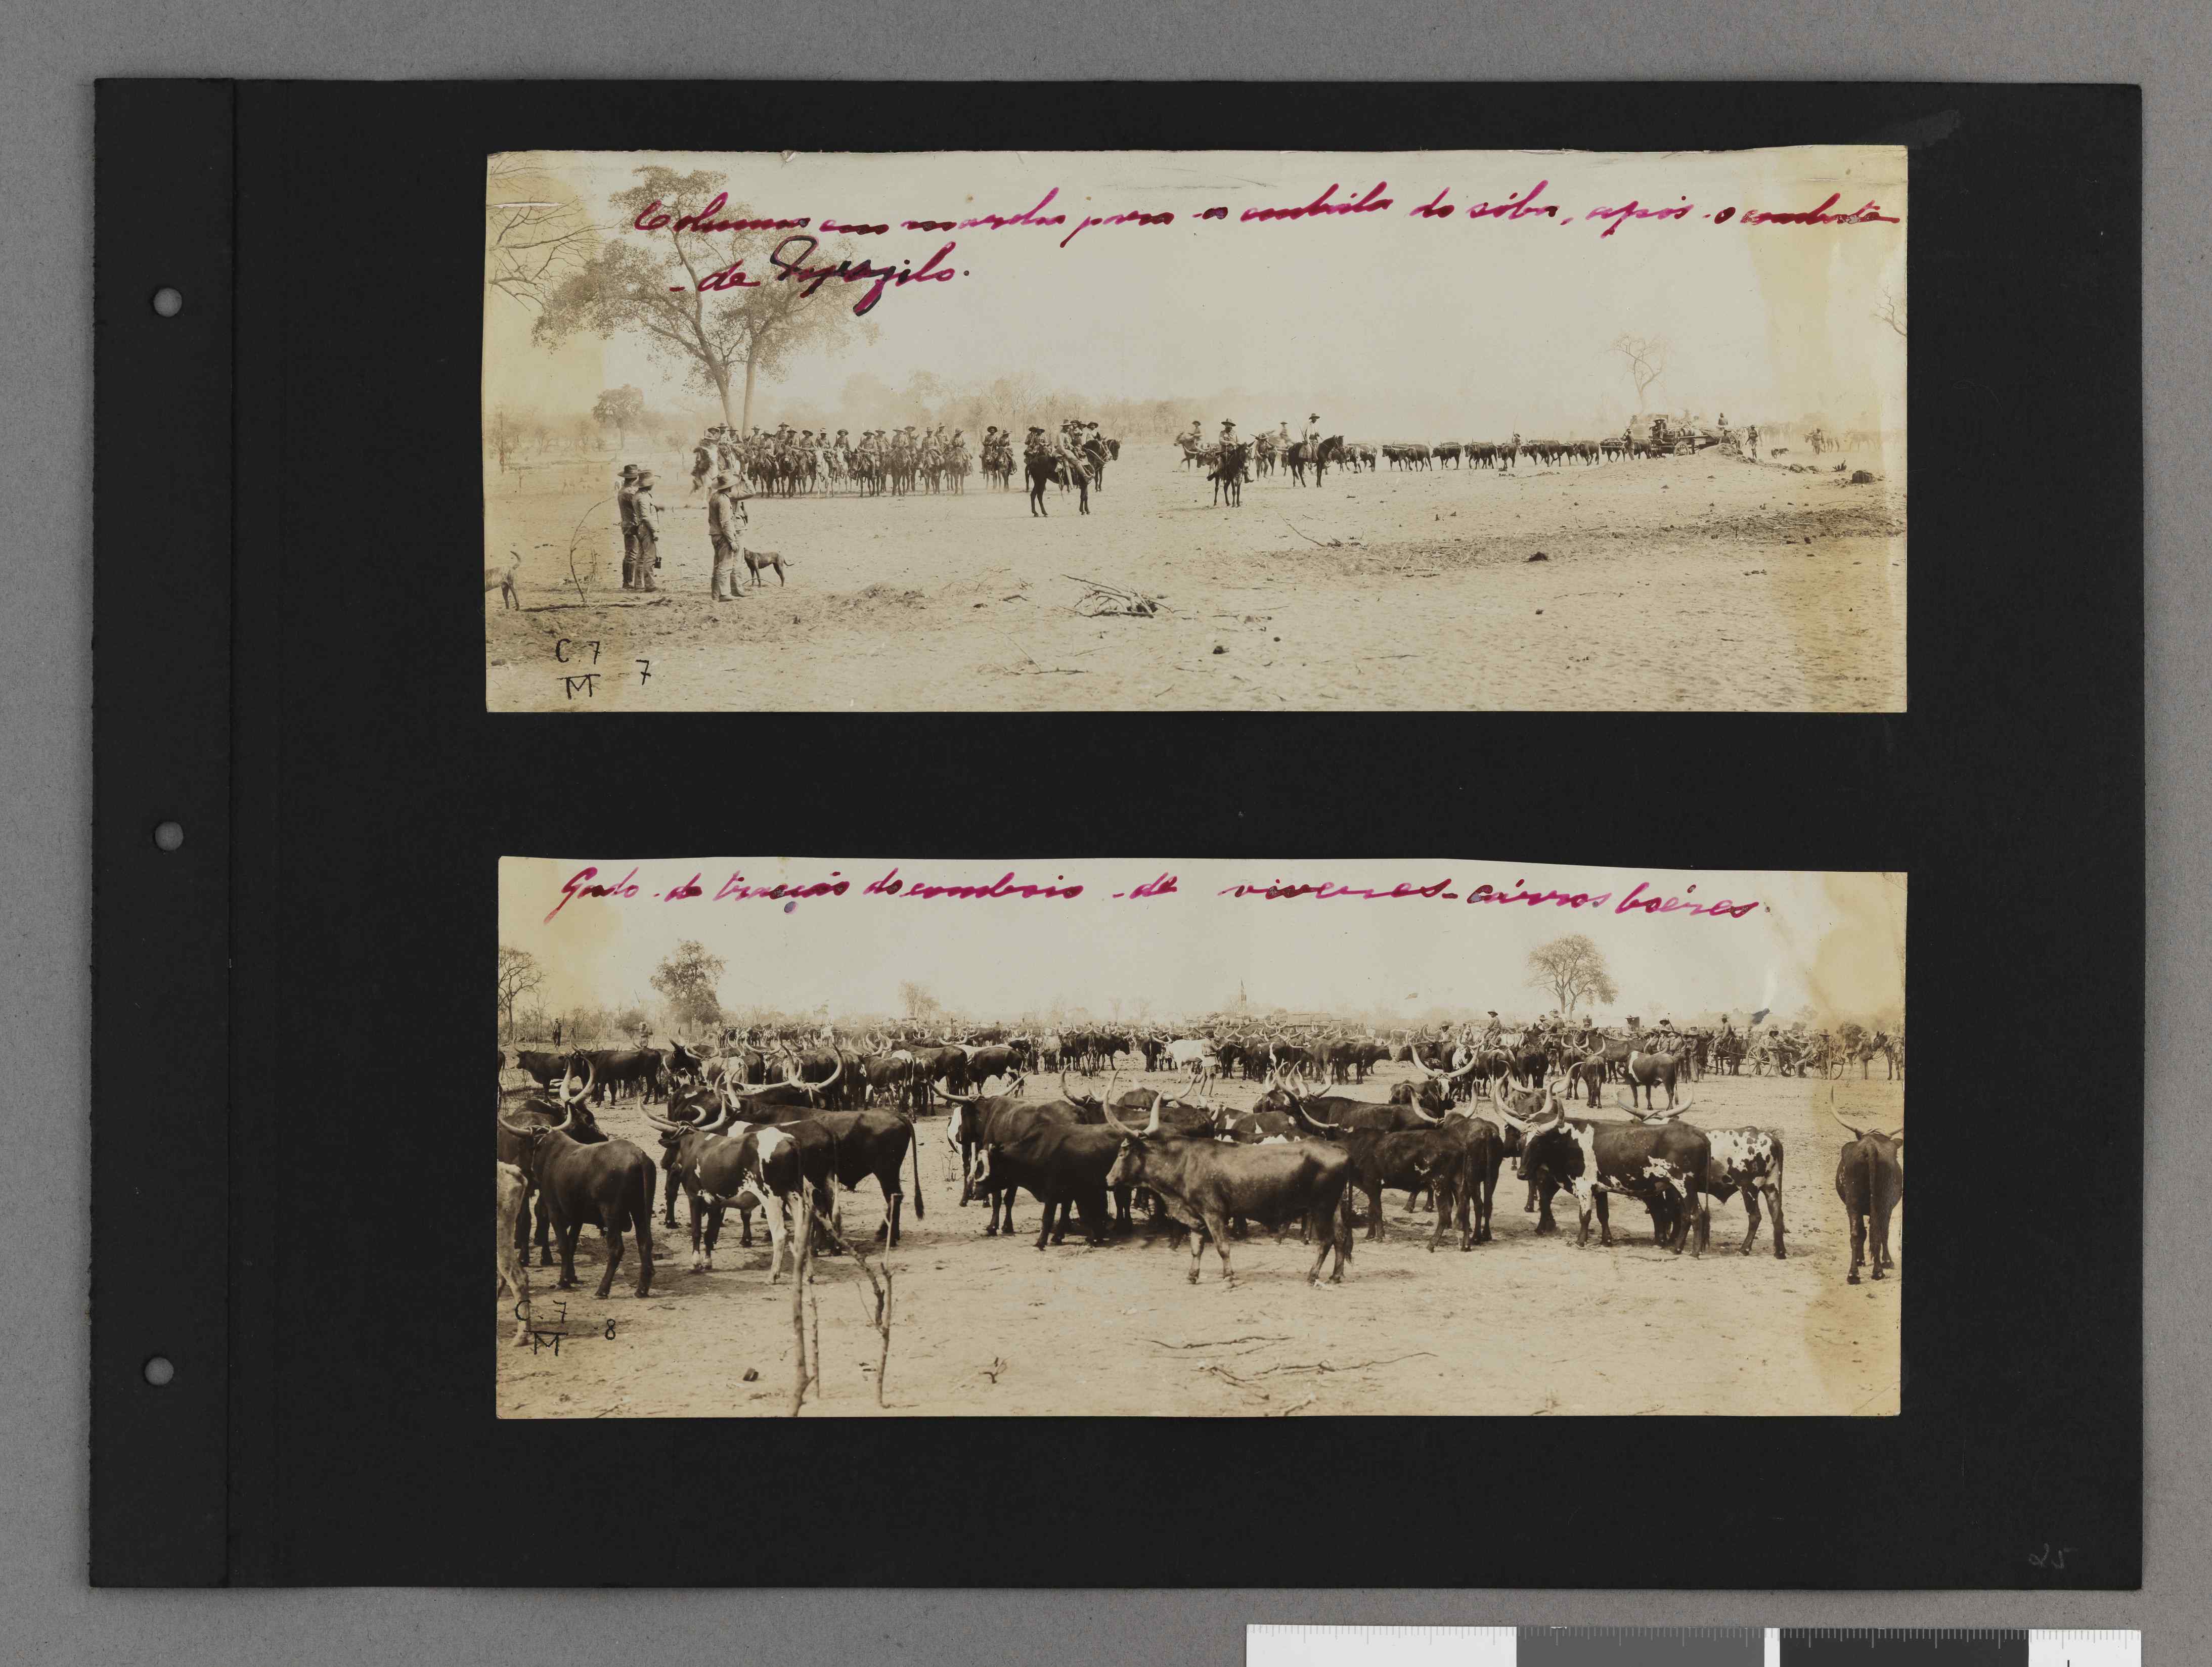 Columna em marcha para a embála do sóba, após o combate
- de
C. 7
M 7
Gado de tracção do comboio - de viveres - cárros boéres.
C. 7
M 8